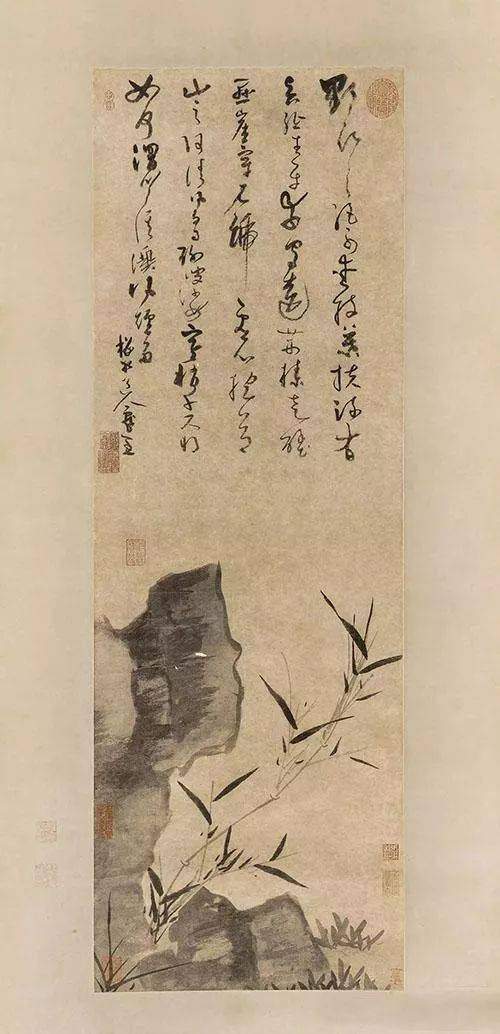 野竹野竹絕可愛枝葉扶疏有
真態生平素守遠荊榛走壁
懸崖穿石罅虛心抱節
山之阿清風白月聊婆娑寒梢千尺將
如何渭川淇澳風煙多
梅花道人戲墨